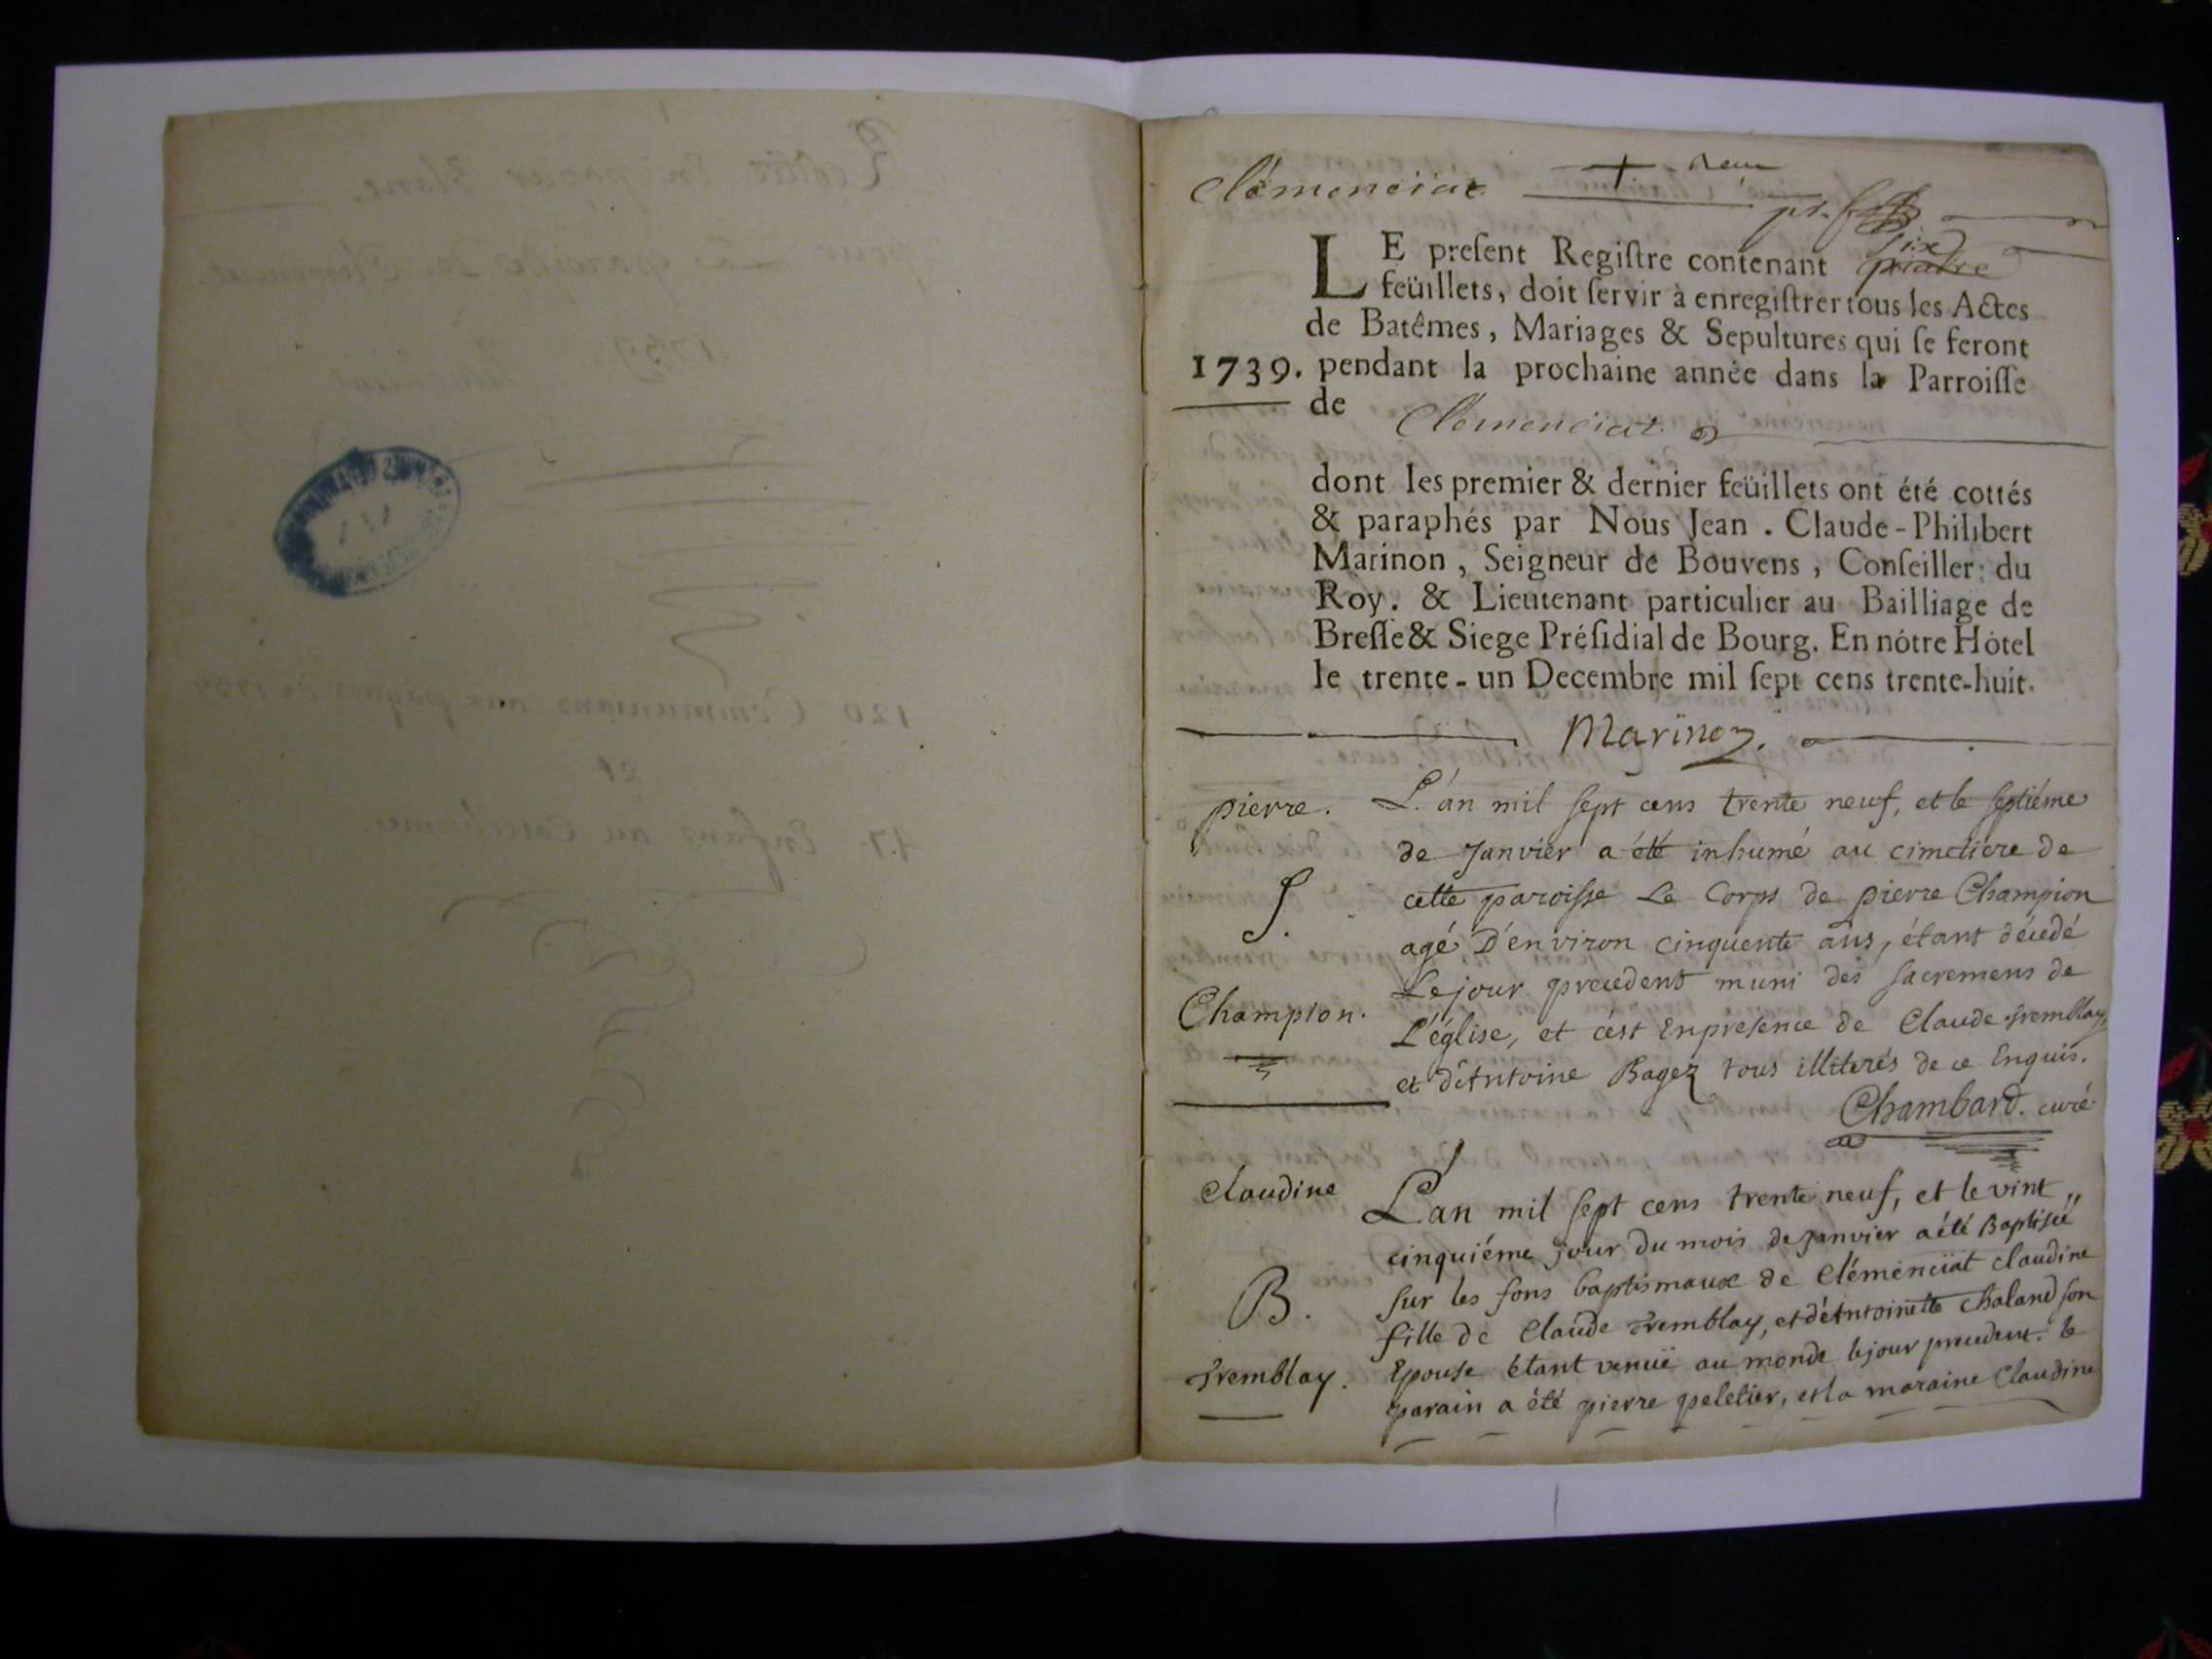 Clémenciat
LE preſent Regiſtre contenant six
feüillets, doit ſervir à enregiſtrer tous les Actes
de Batêmes, Mariages & Sepultures qui ſe feront
1739. pendant la prochaine année dans la Parroiſſe
de Clémenciat
dont les premier & dernier feüillets ont été cottés
& paraphés par Nous Jean . Claude-Philibert
Marinon , Seigneur de Bouvens , Conſeiller du
Roy. & Lieutenant particulier au Bailliage de
Breſſe & Siege Préſidial de Bourg. En nôtre Hôtel
le trente-un Decembre mil ſept cens trente-huit.
Marinon.
pierre.
S.
Champion.
L'an mil sept cens trente neuf, et le septiéme
de Janvier a été inhumé au cimetiere de
cette paroisse Le Corps de pierre Champion
agé D'environ cinquente ans, étant décédé
Le jour precedent muni des sacremens de
L'église, et c'est Enpresence de Claude Tremblay,
et d'Antoine Bagez tous illiterés de ce Enquis.
Chambard. curé
Claudine
B.
Tremblay.
L'an mil sept cens trente neuf, et le vint
cinquiéme jour du mois de Janvier a été Baptisée
sur les fons baptismaux de Clémenciat claudine
fille de Claude Tremblay, et d'Antoinette Chaland son
Epouse Etant venüe au monde le jour precedent. le
parain a été pierre peletier, et la maraine Claudine